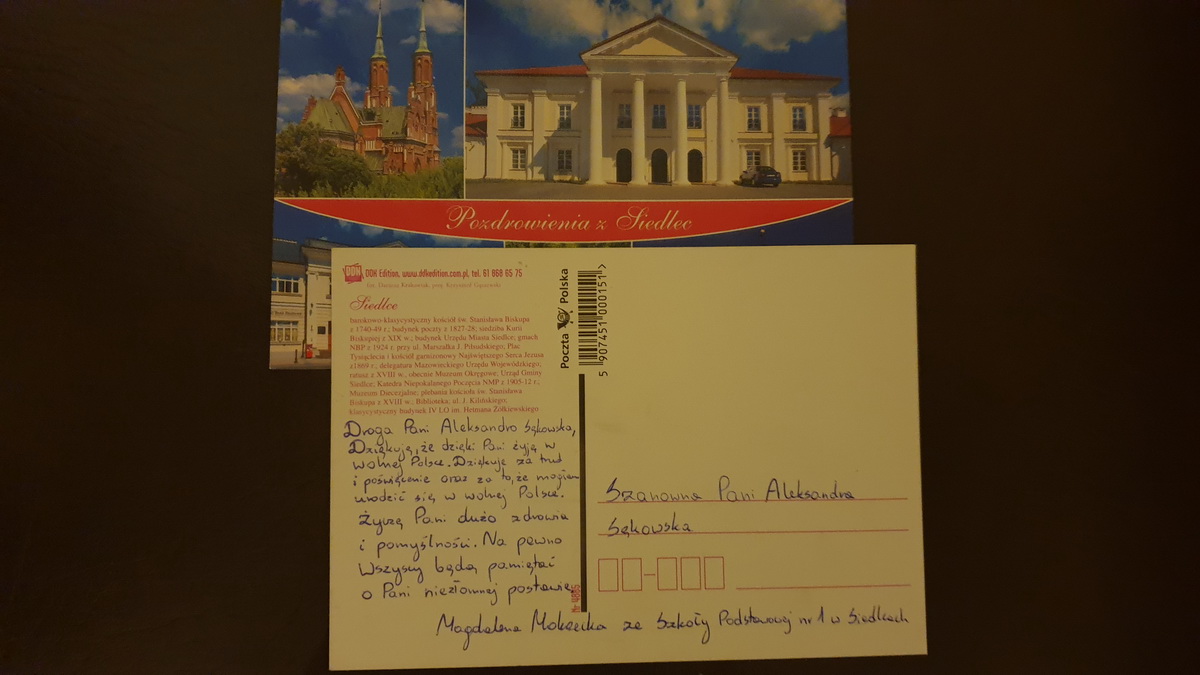 Pozdrowienia z Siedlec
DDK Edition, www.ddkedition.com.pl, tel. 61 868 65 75
fot. Dariusz Krakowiak, proj. Krzysztof
Siedlce
barokowo-klasycystyczny kościół św. Stanisława Biskupa
z 1740-49 r.; budynek poczty z 1827-28; siedziba Kurii
Biskupiej z XIX w.; budynek Urzędu Miasta Siedlce; gmach
NBP z 1924 r. przy ul. Marszałka J. Piłsudskiego; Plac
Tysiąclecia i kościół garnizonowy Najświętszego Serca Jezusa
z1869 r.; delegatura Mazowieckiego Urzędu Wojewódzkiego;
ratusz z XVIII w., obecnie Muzeum Okręgowe; Urząd Gminy
Siedlce; Katedra Niepokalanego Poczęcia NMP z 1905-12 r.;
Muzeum Diecezjalne; plebania kościoła św. Stanisława
Biskupa z XVIII w.; Biblioteka; al. J. Kilińskiego;
klasycystyczny budynek IV LO im. Hetmana Żółkiewskiego
Poczta Polska
5 907451 000151 >
Droga Pani Aleksandro Sękowska,
Dziękuję, że dzięki Pani żyję w
wolnej Polsce. Dziękuje za trud
i poświęcenie oraz za to, że mogłam
urodzić się w wolnej Polsce.
Życzę Pani dużo zdrowia
i pomyślności. Na pewno
Wszyscy będą pamiętać
o Pani niezłomnej postawie.
Nr 4885
Magdalena ze Szkoły Podstawowej nr 1 w Siedlcach
Szanowna Pani Aleksandra
Sękowska